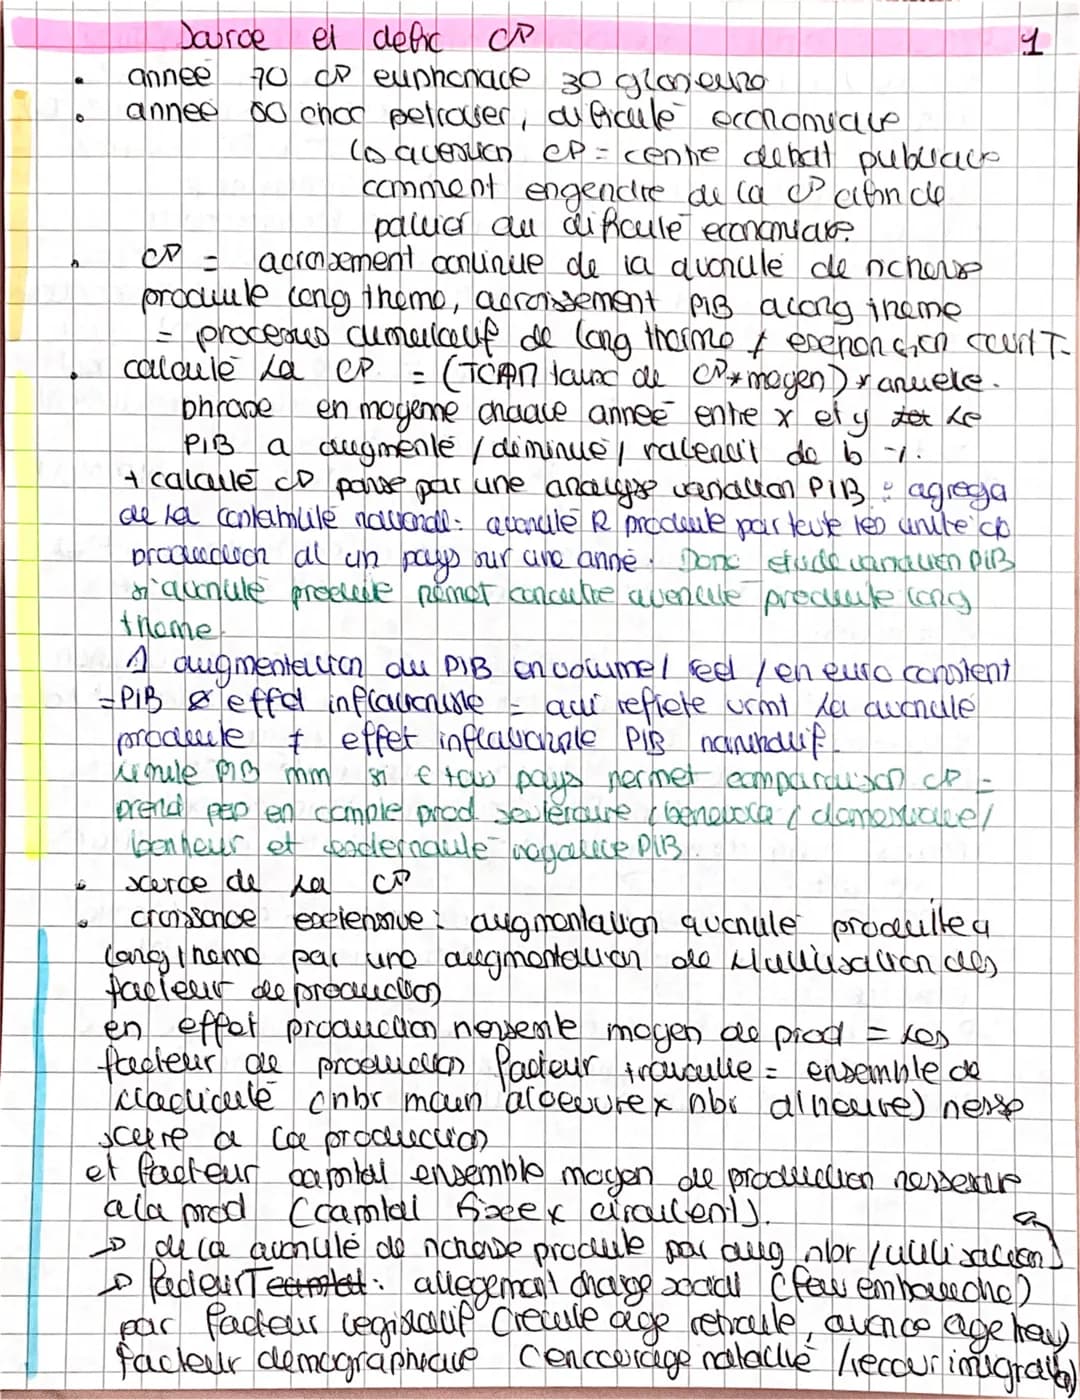 Source et defic CP 1
annee 70 CP euphorace 30 glorieuse
annee 80 choc petrolier, dificulé economique
question CP = centre debat publique
comment engendre de la CP afin de
palier au dificulé economique
CP = accroisement continue de la quantité de richesse
produite long theme, accroissement PIB a long theme
= procesus cumulatif de long therme ≠ expension court T
calculé la CP = (TCAM taux de CP * moyen) * anuele.
phrase en moyenne chaque année entre x et y le
PIB a augmenté / diminué / ralentit de b -1.
+ calculé CP panse par une analyse variation PIB : agrega
de la contabilité nationale: quantité R produite par toute les unité de
production d'un pays sur une anné. Donc etude variation PIB
si quantité produite permet conaitre quantité produite long
theme.
⚠ augmentation du PIB en volume / reel / en euro constent
= PIB effet inflationiste = qui reflete vrmt la quantité
produite ≠ effet inflationiste PIB
limite PIB mm si € tous pays permet comparaison CP =
prend pas en compte prod / domestique /
bonheur et PIB.
source de la CP
croissance extensive : augmentation quantité produite a
long theme par une augmentation de l'utilisation des
facteur de production
en effet production nessesite moyen de prod = les
facteur de production facteur travaille = ensemble de
(nbr main d'oeuvre x nbr d'heure) nesse
scere a la production
et facteur capital ensemble moyen de production nessesere
a la prod (capital fixe x circulent).
→ de la quantité de richesse produite par aug nbr / utilisation
→ facteur T : allegement charge social (fav embauche)
par facteur legislatif (recule age retraite, avance age
facteur demographique (encourage natalité / recour imigrat